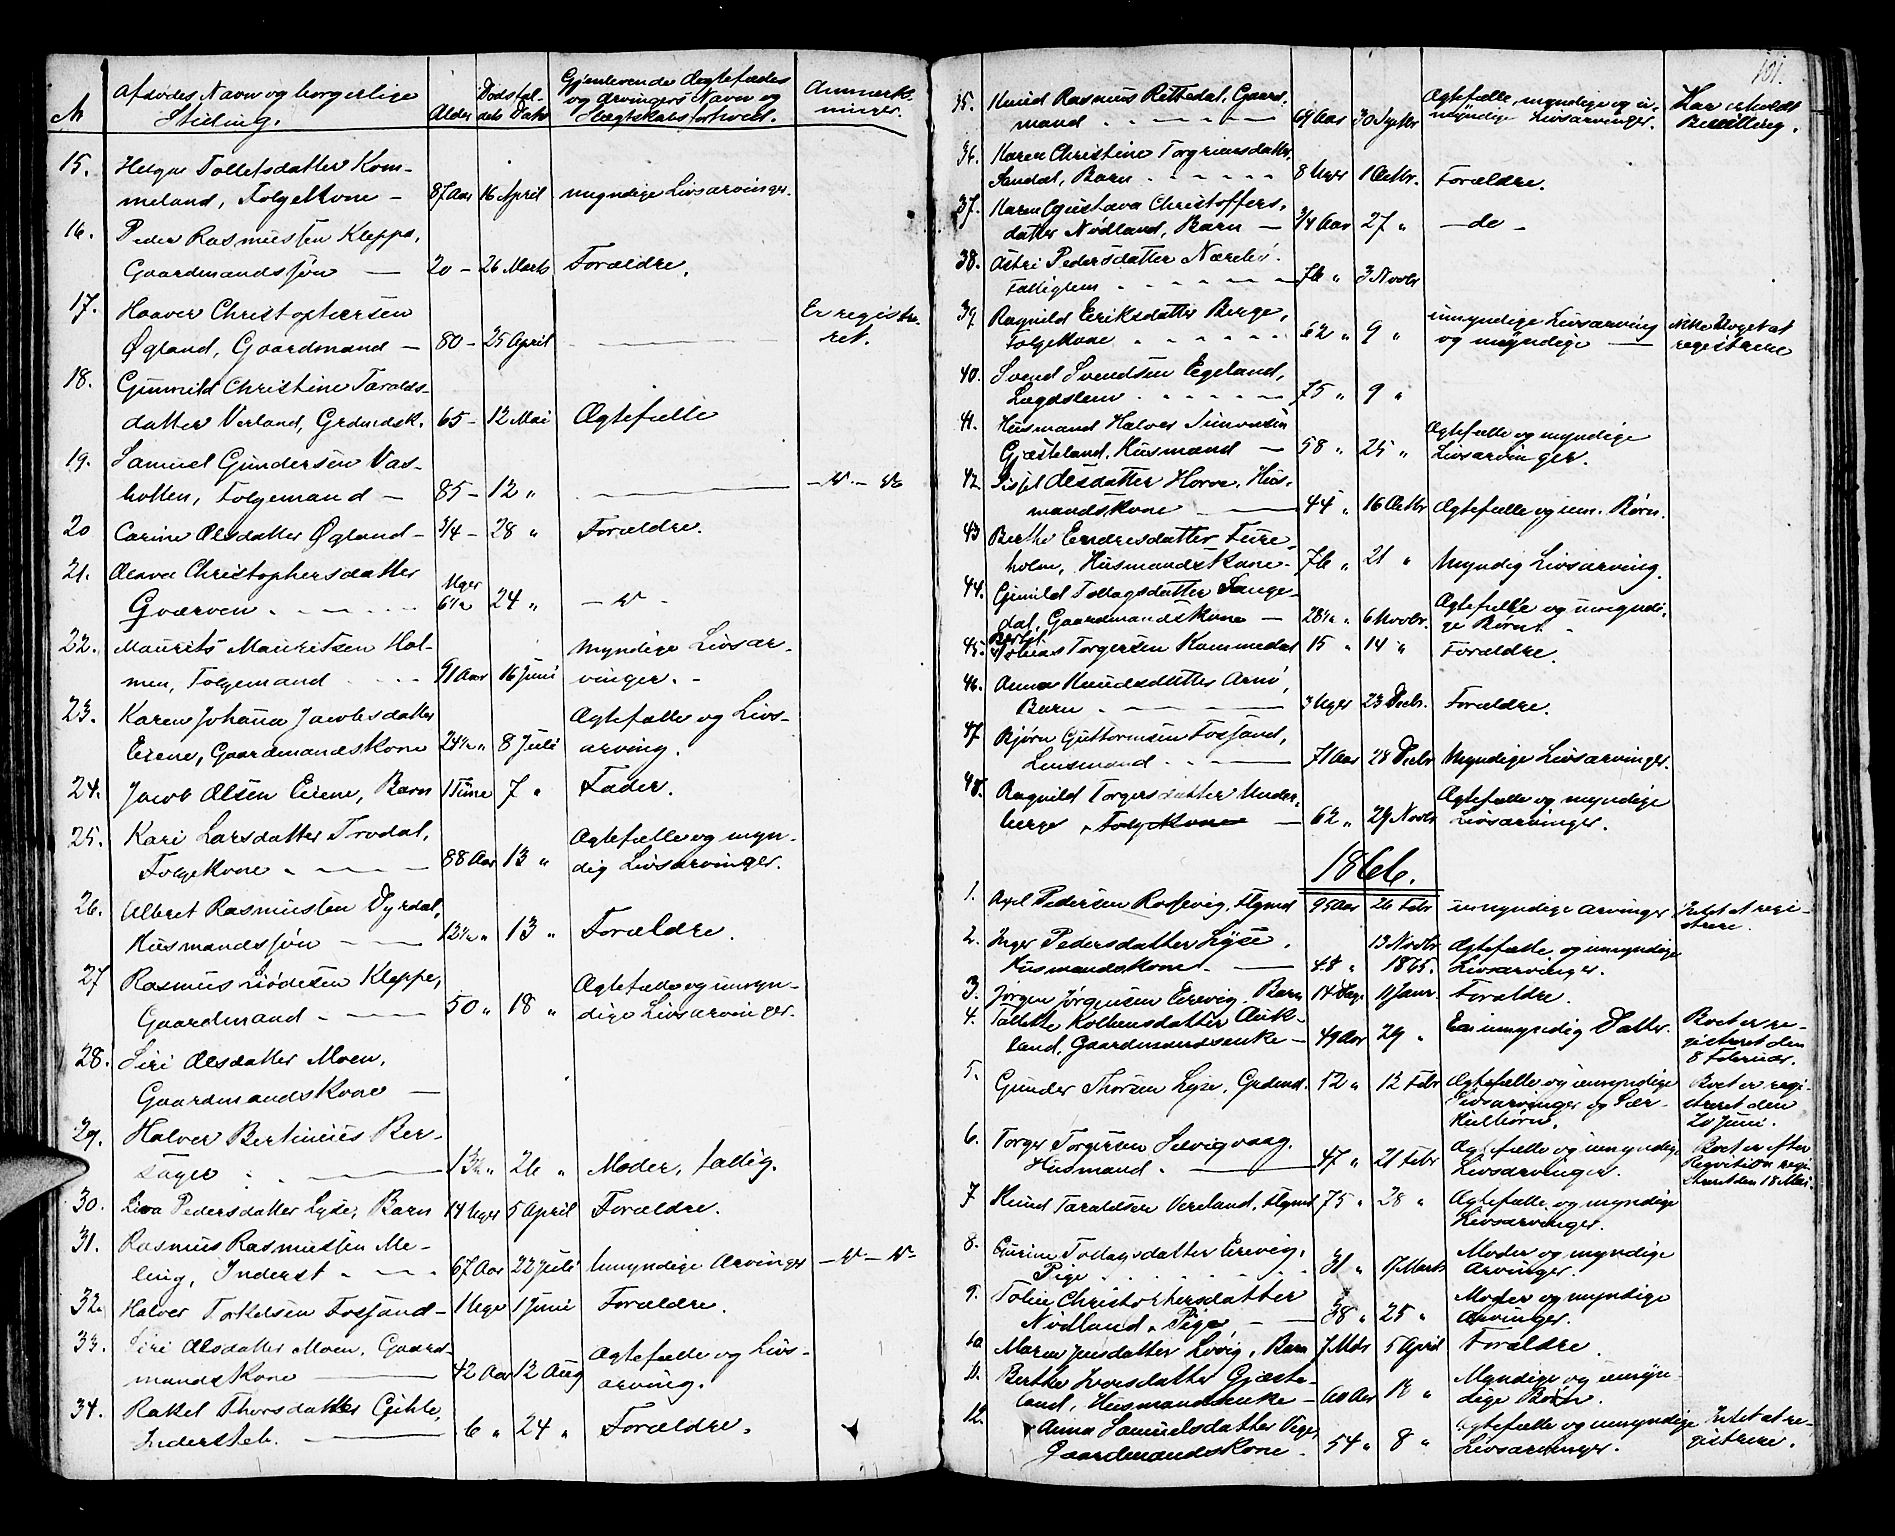 № Afdødes Navn og borgerlige Stilling. Alder Dødsfaldets Dato Gjenlevende Ægtefædes og Arvingers Navn og Slægtskabsforhold. Anmærkninger.
15. Helga Tolletsdatter Kom-
meland, Folgekone – 87 Aar 16 April myndige Livsarvinger.
16. Peder Rasmussen Kleppe,
Gaardmandssøn — 20 – 26 Marts Forældre.
17. Haaver Christophersen
Øgland, Gaardmand – 80 – 25 April — Er registre-
ret.
18. Gunnild Christine Taralds-
datter Verland, Grdmdsk. 65 – 12 Mai Ægtefælle
19. Samuel Gundersen Vas-
hotten, Folgemand – 85 – 12 „ —
20 Carine Olsdatter Øgland – 3/4 – 28 „ Forældre.
21. Olava Christophersdatter
Gværven . Uger 6½ 24 „
22. Maurits Mauritsen Hol-
men, Folgemand 91 Aar 16 Juni Myndige Livsar-
vinger. –
23. Karen Johana Jacobsdatter
Eiene, Gaardmandskone 24½ „ 8 Juli Ægtefælle og Livs-
arving.
24. Jacob Olsen Eiene, Barn 1 Time 7 „ Fader.
25. Kari Larsdatter Frodal,
Folgekone 88 Aar 13 „ Ægtefælle og myn-
dig Livsarvinger.
26. Albret Rasmussen Dyrdal,
Husmandssøn 12½ „ 13 „ Forældre.
27 Rasmus Kleppe,
Gaardmand 50 „ 18 „ Ægtefælle og umyn-
dige Livsarvinger.
28. Siri Olsdatter Moen,
Gaardmandskone —
29. Halver Bertinius Ber-
sager 26 „ Moder, fattig.
30. Lisa Pedersdatter Lyse, Barn 14 Uger 5 April Forældre.
31. Rasmus Rasmussen Me-
ling, Inderst 67 Aar 22 Juli Umyndige Arvinger
32. Halver Torkelsen Fossand – 1 Uge 1 Juni Forældre.
33 Siri Olsdatter Moen, Gaard-
mandskone 42 Aar 12 Aug Ægtefælle og Livs-
arving.
34. Rakel Thorsdatter
Indersteb. 6 „ 24 „ Forældre.
101.
35. Knud Rasmus Rettedal, Gaard-
mand 69 Aar 30 Ægtefælle, myndige og u-
myndige Livsarvinger. Har erholdt
Bevilling.
36. Karen Christine Torgriansdatter,
Sandal, Barn 8 Uger 1 Octbr. Forældre.
37. Karen Gustava Christoffers-
datter Nødland, Barn – 3/4 Aar 27 „ – do –
38. Astri Pedersdatter
Fattiglem 76 „ 3 Novbr
39. Ragnild Eriksdatter Berge,
Folgekone 62 „ 9 „ umyndige Livsarving
og myndige — ikke at
registrere
40. Svend Svendsen Egeland,
Lægdslem 75 „ 9 „
41. Husmand Halvor Simonsen
Gjesteland, Husmand – 58 „ 25 „ Ægtefælle og myndige
Livsarvinger.
42. Sissel Olsdatter Horve, Hus-
mandskone 44 „ 16 Octbr Ægtefælle og um. Børn.
43 Berthe Endresdatter Fure-
holm, Husmandskone – 76 „ 21 „ Myndig Livsarving.
44. Gunild Tollagsdatter Lange-
dal, Gaardmandskone – 28½ „ 6 Novbr. Ægtefælle og umyndi-
ge Børn.
45. Torgersen Kommedal 15 „ 14 „ Forældre.
46. Anna Knudsdatter
Barn 3 Uger 23 Decbr. Forældre.
47 Bjørn Guttormsen Fossand,
Lensmand 71 Aar 28 Decbr Myndige Livsarvinger.
48. Ragnild Torgersdatter Under-
berge, Folgekone 62 „ 29 Novbr Ægtefælle og myndige
Livsarvinger.
1866.
1. Axel Pedersen Rossevig, Flgmd 95 Aar 26 Febr umyndige Arvinger at regi-
strere.
2. Inger Pedersdatter Lyse,
Husmandskone 48 „ 13 Novbr
1865. Ægtefælle og umyndige
Livsarvinger.
3. Jørgen Jørgensen Eirevig, Barn 14 Dage 11 Janr. Forældre.
4. Tallette Kolbensdatter Auk-
land, Gaardmandsenke – 49 Aar 29 „ En umyndig Datter. Boet er re-
gistreret den
8 Februar.
5. Gunder Thorsen Lyse, Grdmd. „ 12 Febr Ægtefælle og umyndige
Livsarvinger og Sær-
kulbørn. Boet er regi-
streret den
20 Juni.
6. Torger Torgersen Selvigvaag,
Husmand 47 „ 21 Febr Ægtefælle og umyndige
Livsarvinger. Boet er efter
regi-
streret den 18 Mai.
7 Knud Taraldsen Vereland, Flgmd 75 „ 28 „ Ægtefælle og myndige
Livsarvinger.
8. Gurine Tollagsdatter Eirevig,
Pige 31 „ 17 Marts Moder og myndige
Arvinger.
9. Christophersdatter
Nødland, Pige 38 „ 25 „ Moder og myndige
Arvinger.
10 Maren Jensdatter Løvig, Barn 7 Mdr 5 April Forældre.
11. Berthe Iversdatter Gjeste-
land, Husmandsenke – 60 Aar „ Myndige og umyn-
dige Børn
12. Anna Samuelsdatter Vige,
Gaardmandskone 54 „ 8 „ Ægtefælle og umyndige
Livsarvinger. at re-
gistrere.